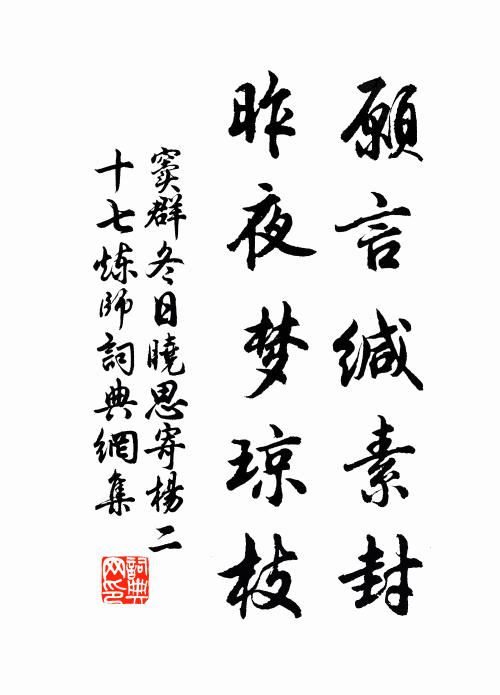 願言缄素封
昨夜梦琼枝
窦群冬日曉思寄楊二
十七炼师詞典網集
詞典网印